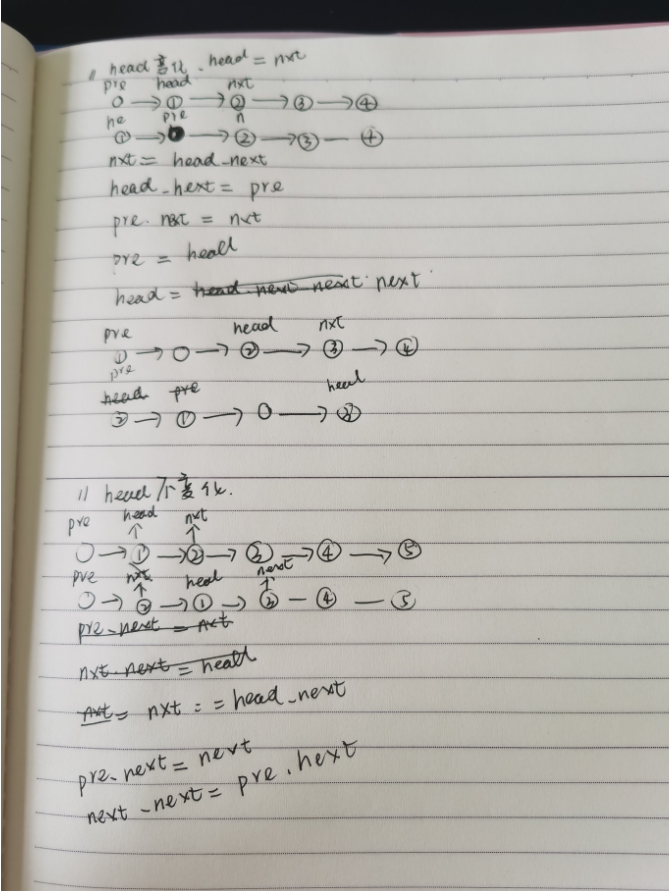 // head变化. head = nxt
pre head nxt
○ → ① → ② → ③ → ④
he pre n
① → ● → ② → ③ — ④
nxt = head.next
head.next = pre
pre.next = nxt
pre = head
head = head.next.next next
pre head nxt
① → ○ → ② → ③ → ④
pre
head pre head
② → ① → ○ → ③
// head不变化.
pre head nxt
○ → ① → ② → ③ → ④ → ⑤
pre nxt head next
○ → ② → ① → ③ — ④ — ⑤
pre.next = nxt
nxt.next = head
nxt = nxt := head.next
pre.next = next
next.next = pre.next